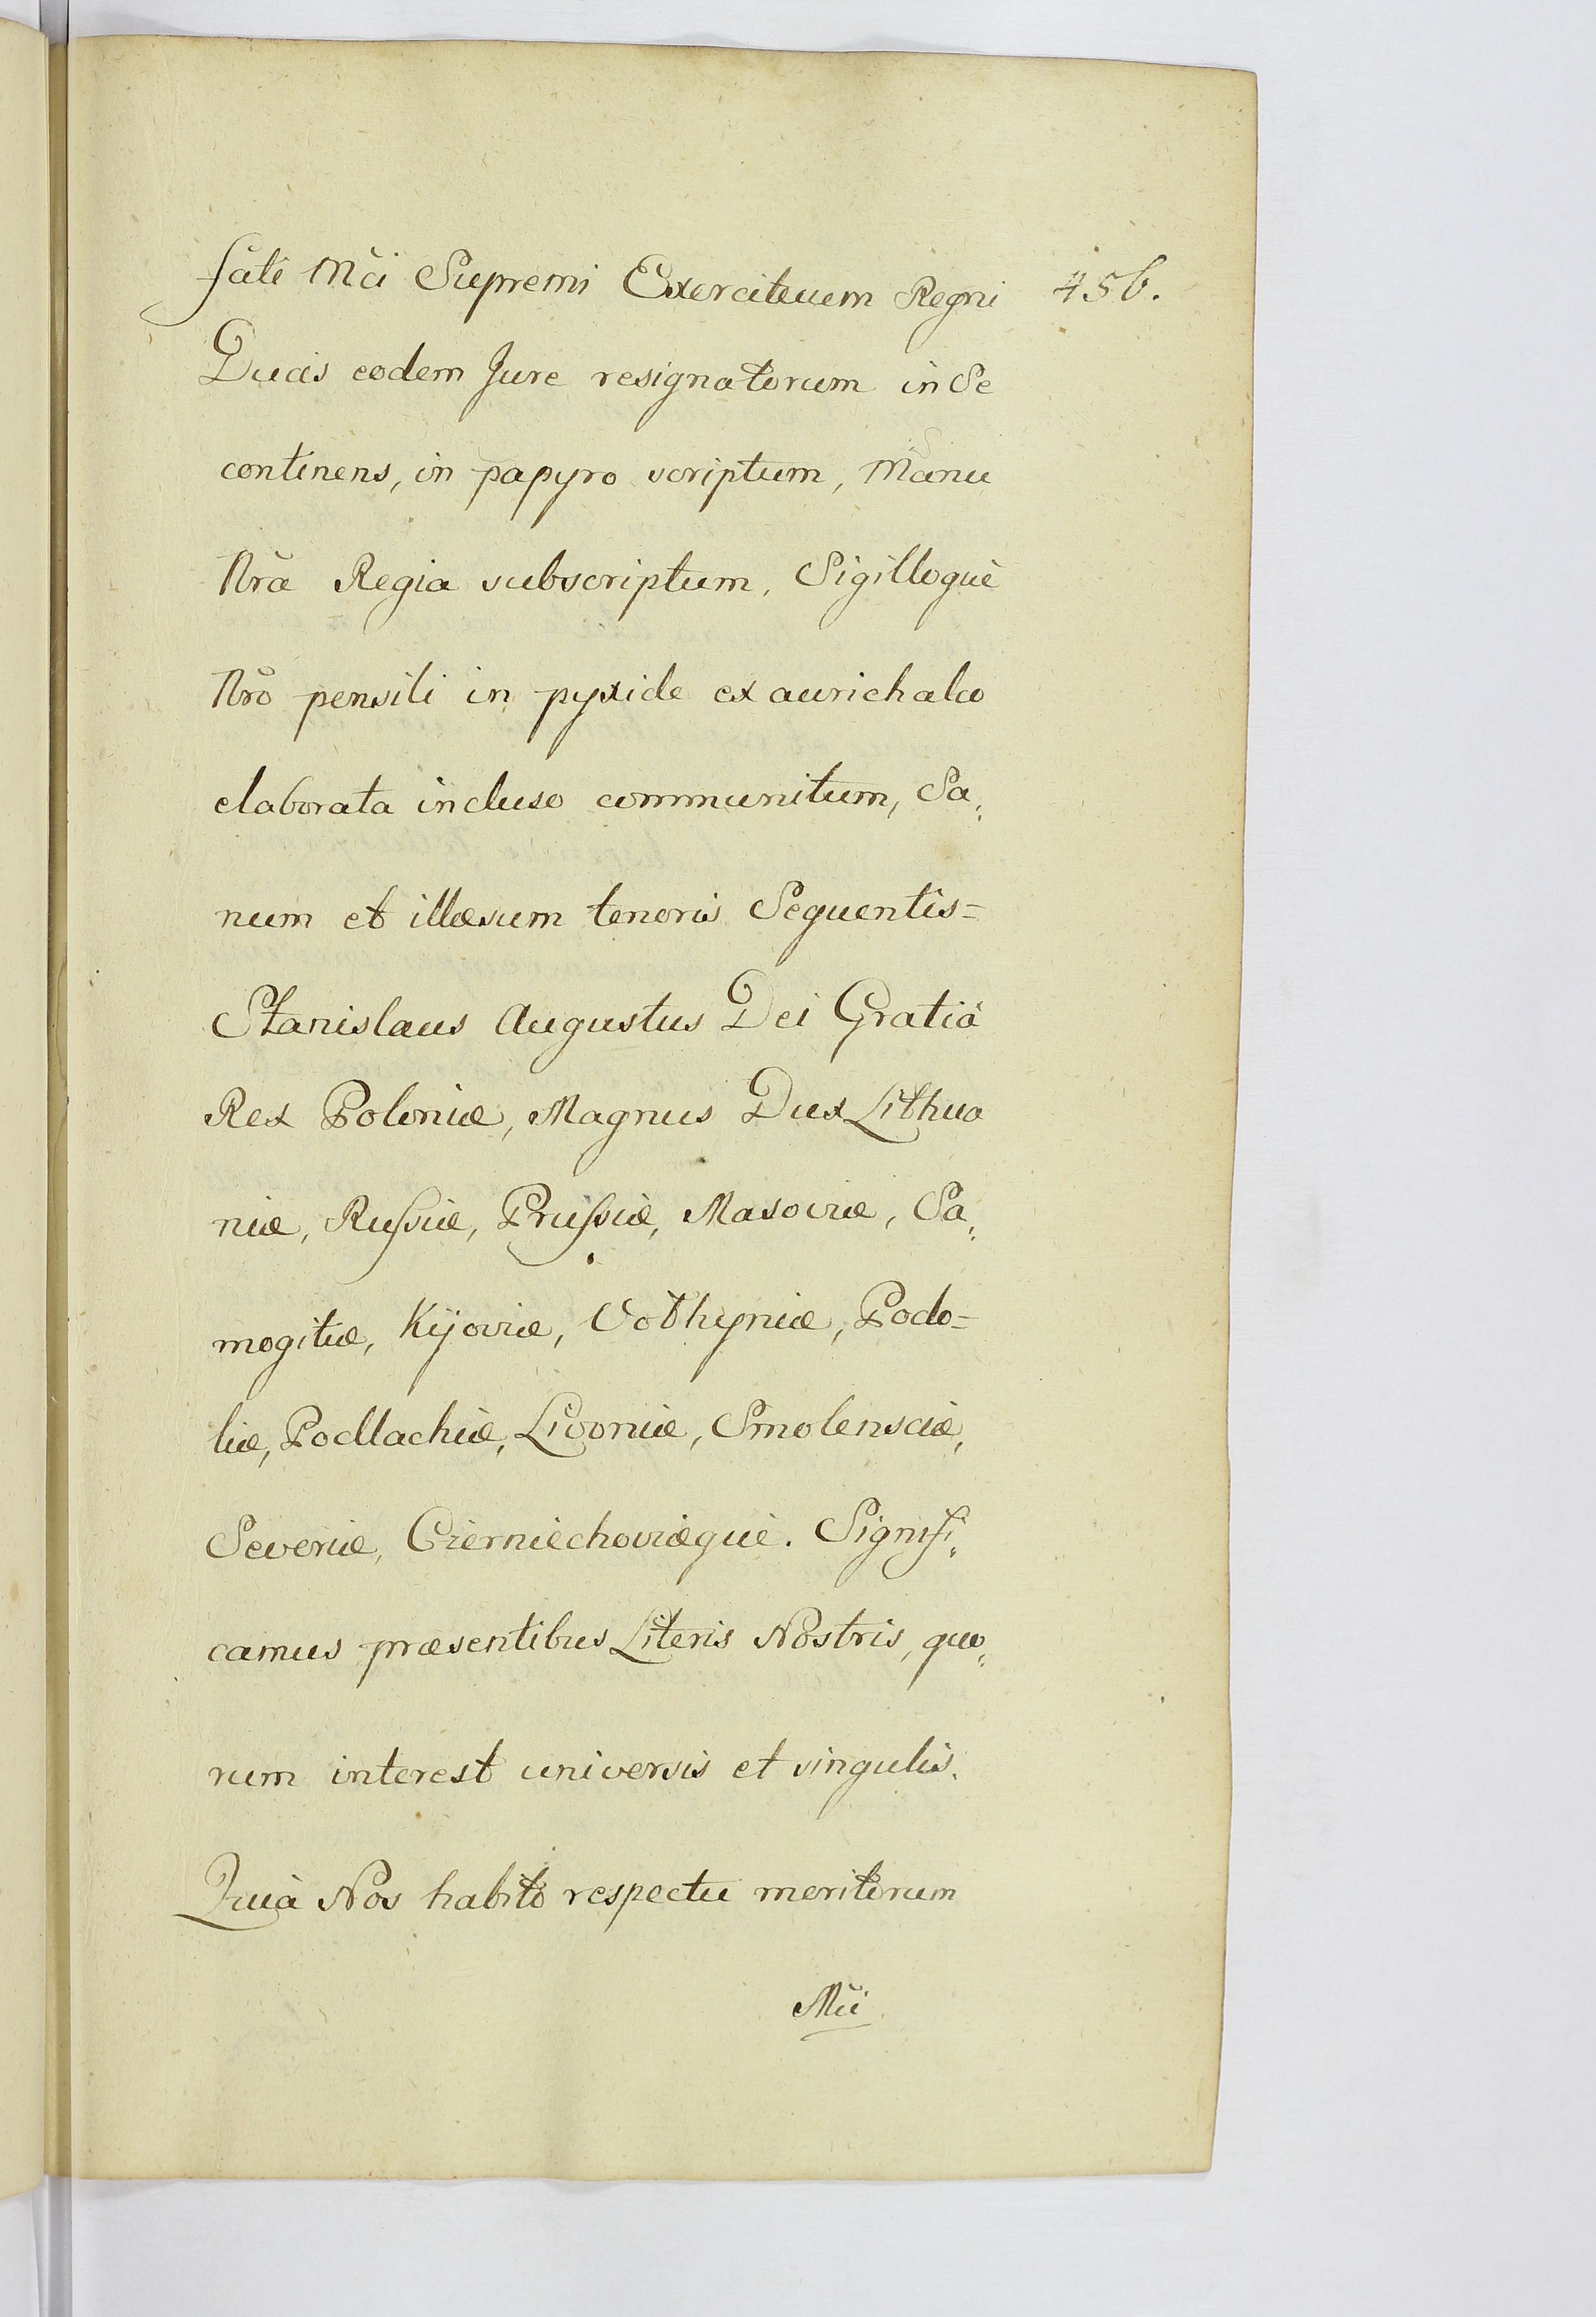 fati Mci Supremi Exercituum Regni 456.
Ducis eodem Jure resignatorum in Se
continens, in papyro scriptum, Manu
Nra Regia subscriptum, Sigilloque
Nro pensili in pyxide ex aurichalco
elaborata incluso communitum, Sa„
num et illæsum tenoris Sequentis=
Stanislaus Augustus Dei Gratiâ
Rex Poloniæ, Magnus Dux Lithua
niæ, Russiæ, Prussiæ, Masoviæ, Sa„
mogitiæ, Kÿoviæ, Volhyniæ, Podo=
liæ, Podlachiæ, Livoniæ, Smolensciæ,
Severiæ, Czerniechoviæque. Signifi„
camus præsentibus Literis Nostris, quo„
rum interest universis et singulis.
Quià Nos habito respectu meritorum
Mci